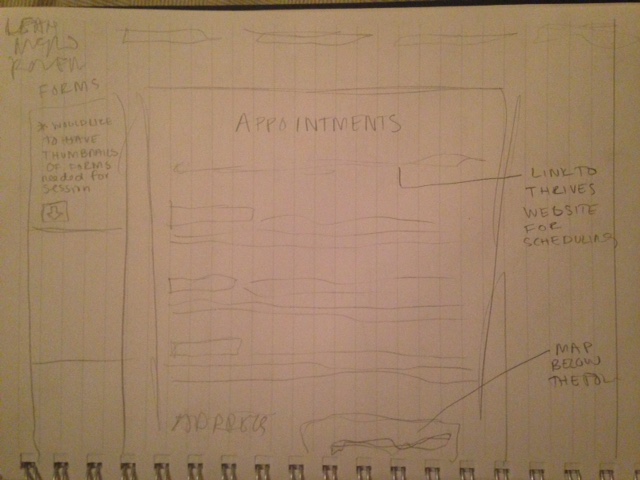 LEAH
FORMS
* WOULD LIKE
TO HAVE
THUMBNAILS
OF FORMS
needed for
session
APPOINTMENTS
LINK TO
THRIVES
WEBSITE
FOR
SCHEDULING
MAP
BELOW
ADDRESS